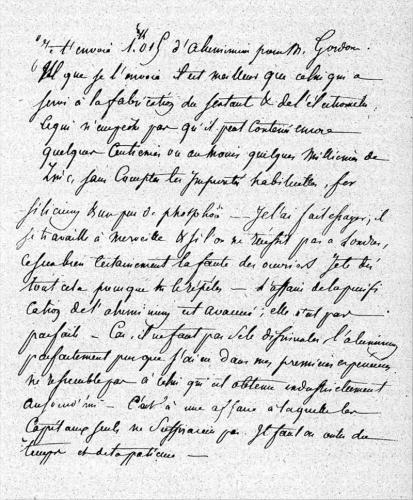 Je t'envoie 1.k015 d'aluminium pour M. Gordon.
Tel que je l'envoie il est meilleur que celui qui a
servi à la fabrication du sextant & de l'électromètre
ce qui n'empêche pas qu'il peut contenir encore
quelques centièmes ou au moins quelques millièmes de
Zinc, sans compter les impuretés habituelles, fer
silicium & un peu de phosphore — Je l'ai fait essayer, il
se travaille à merveille & si l'on ne réussit pas à Londres,
ce sera bien certainement la faute des ouvriers. Je te dis
tout cela pour que tu le répètes — L'affaire de la purifi
cation de l'aluminium est avancée ; elle n'est pas
parfaite — Car, il ne faut pas se le dissimuler l'aluminium
parfaitement pur que j'ai eu dans mes premières expériences
ne ressemble pas à celui qui est obtenu industriellement
aujourd'hui — C'est à une affaire à laquelle les
Capitaux seuls ne suffiraient pas. Il faut en outre du
temps et de la patience —